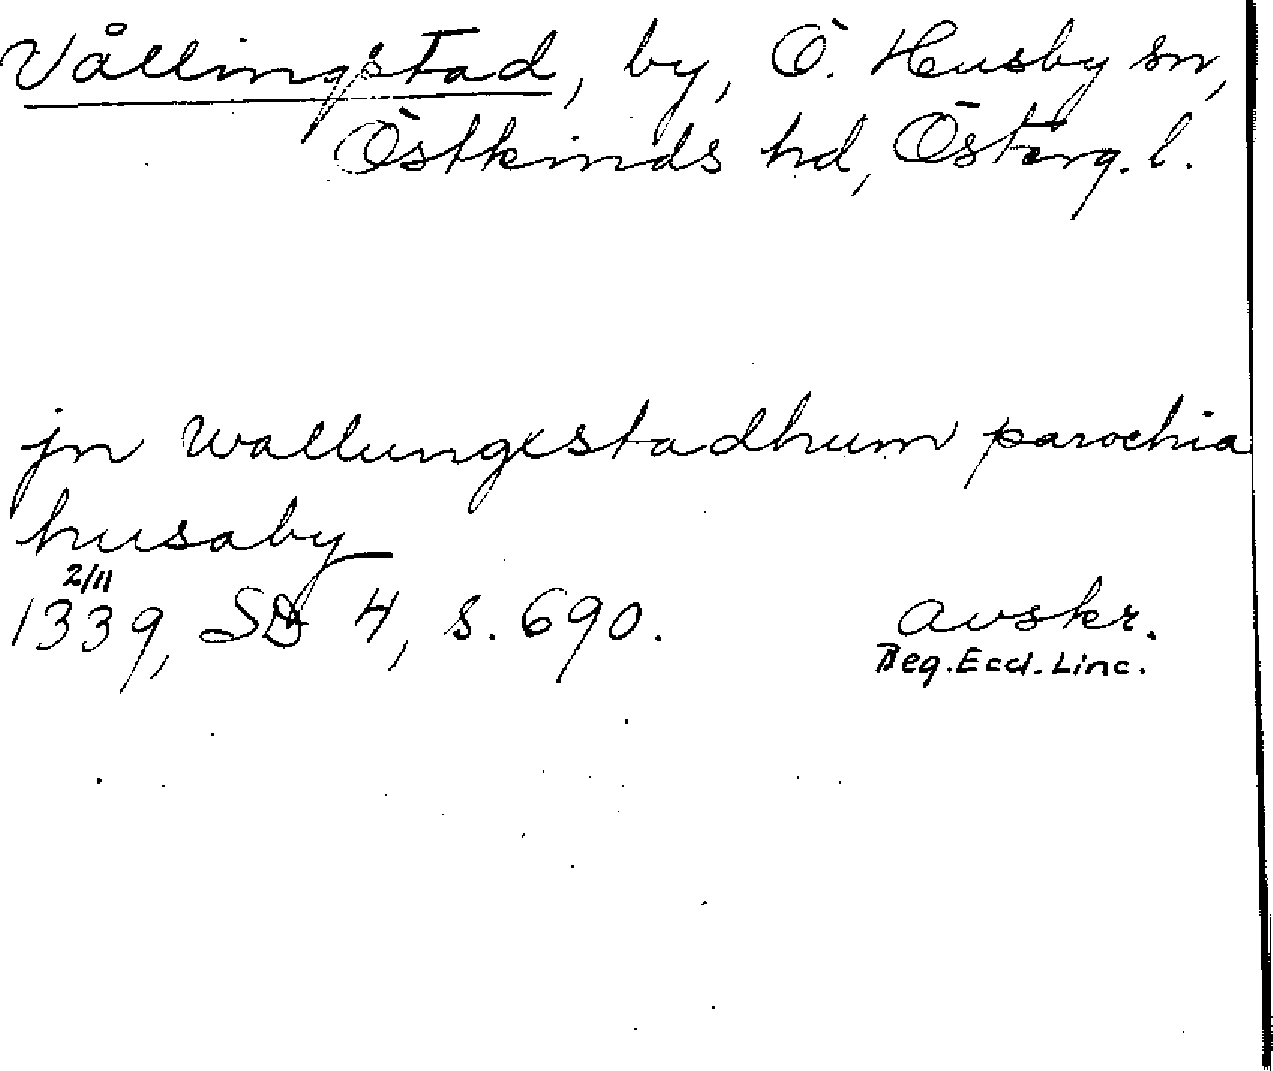 Vållingstad, by, Ö. Husby sn,
Östkinds hd, Österg. l.
jn wallungestadhum parochia
husaby
2/11
1339, SD 4, s. 690. avskr.
Reg. Eccl. Linc.